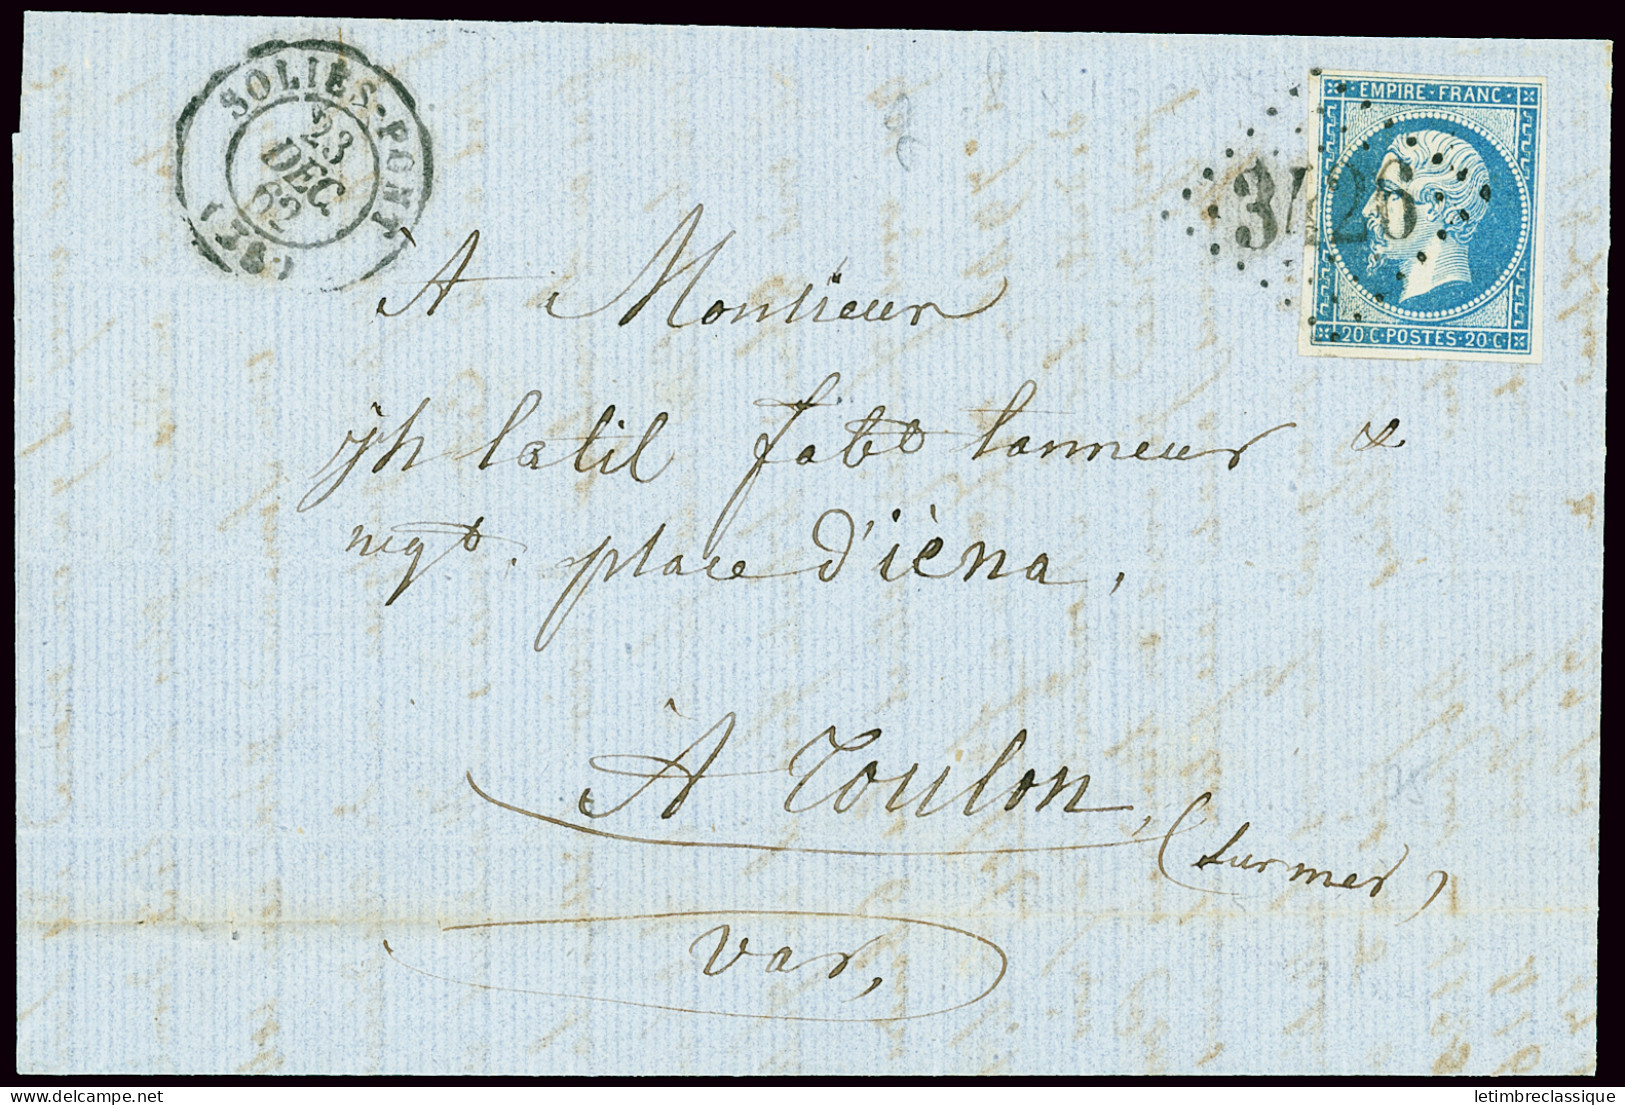 SOLIÈS-PONT
23
DEC
62
(78)
EMPIRE · FRANC ·
3426
20 · C · POSTES · 20 · C ·
A Monsieur
jh latil fabt tanneur &
negt. place d'ièna,
A Toulon,
(sur mer)
var,
delcampe.net
letimbreclassique